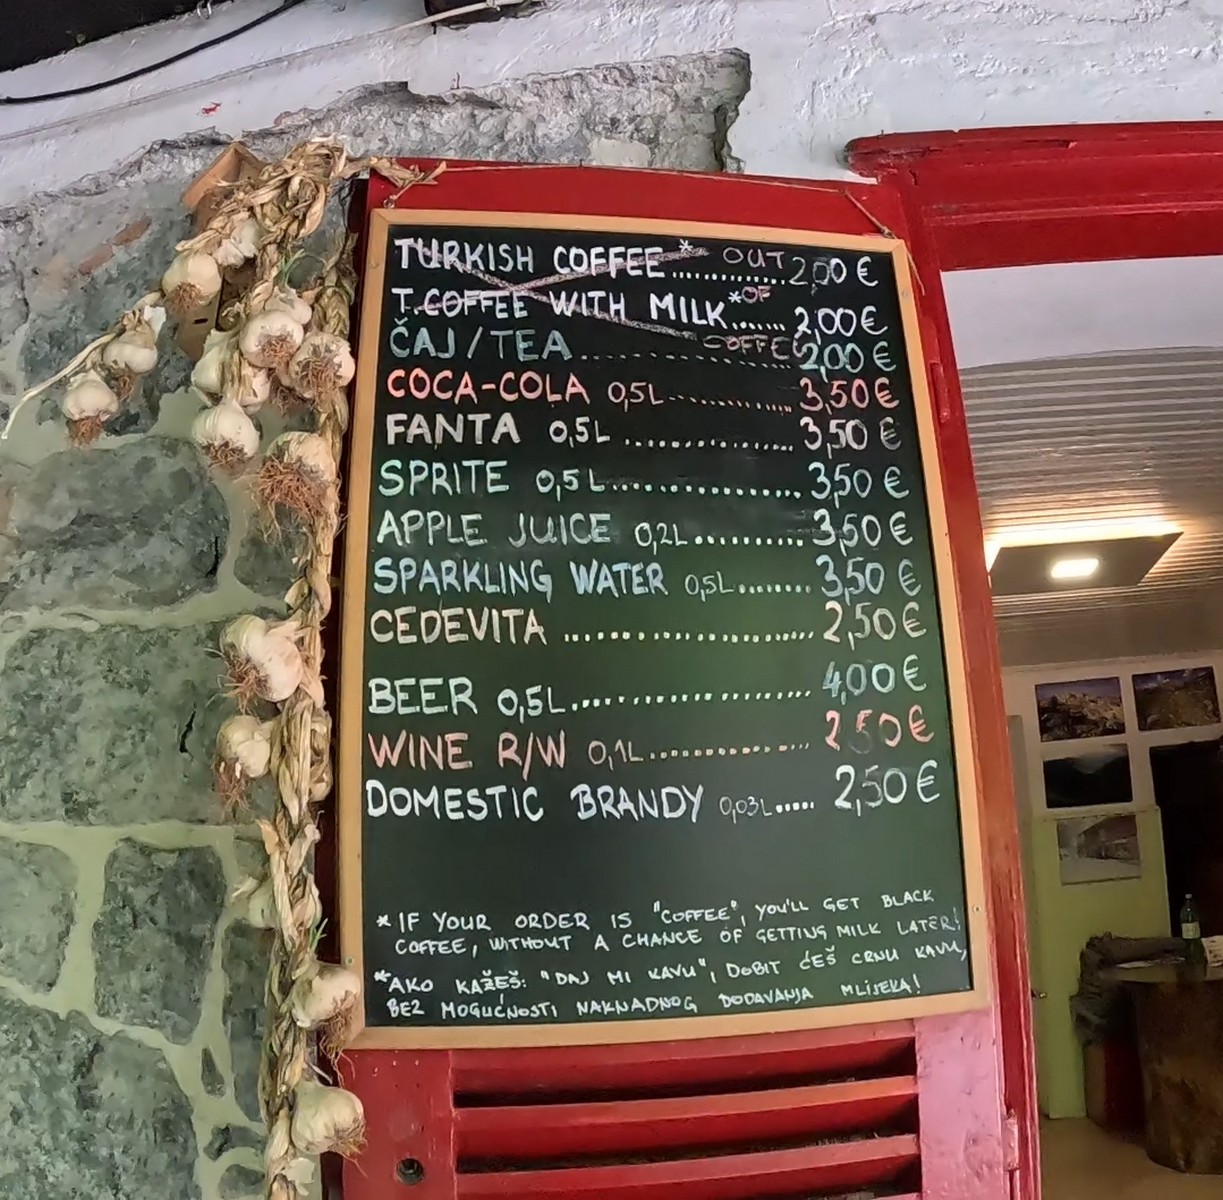 TURKISH COFFEE*............ OUT 2,00 €
T.COFFEE WITH MILK*....... OF 2,00 €
ČAJ/TEA................... COFFEE 2,00 €
COCA-COLA 0,5L.............. 3,50 €
FANTA 0,5L .................. 3,50 €
SPRITE 0,5L.................. 3,50 €
APPLE JUICE 0,2L........... 3,50 €
SPARKLING WATER 0,5L........ 3,50 €
CEDEVITA .......................... 2,50 €
BEER 0,5L......................... 4,00 €
WINE R/W 0,1L................. 2,50 €
DOMESTIC BRANDY 0,03L..... 2,50 €
* IF YOUR ORDER IS "COFFEE", YOU'LL GET BLACK
COFFEE, WITHOUT A CHANCE OF GETTING MILK LATER!
*AKO KAŽEŠ: "DAJ MI KAVU", DOBIT ĆEŠ CRNU KAVU,
BEZ MOGUĆNOSTI NAKNADNOG DODAVANJA MLIJEKA!